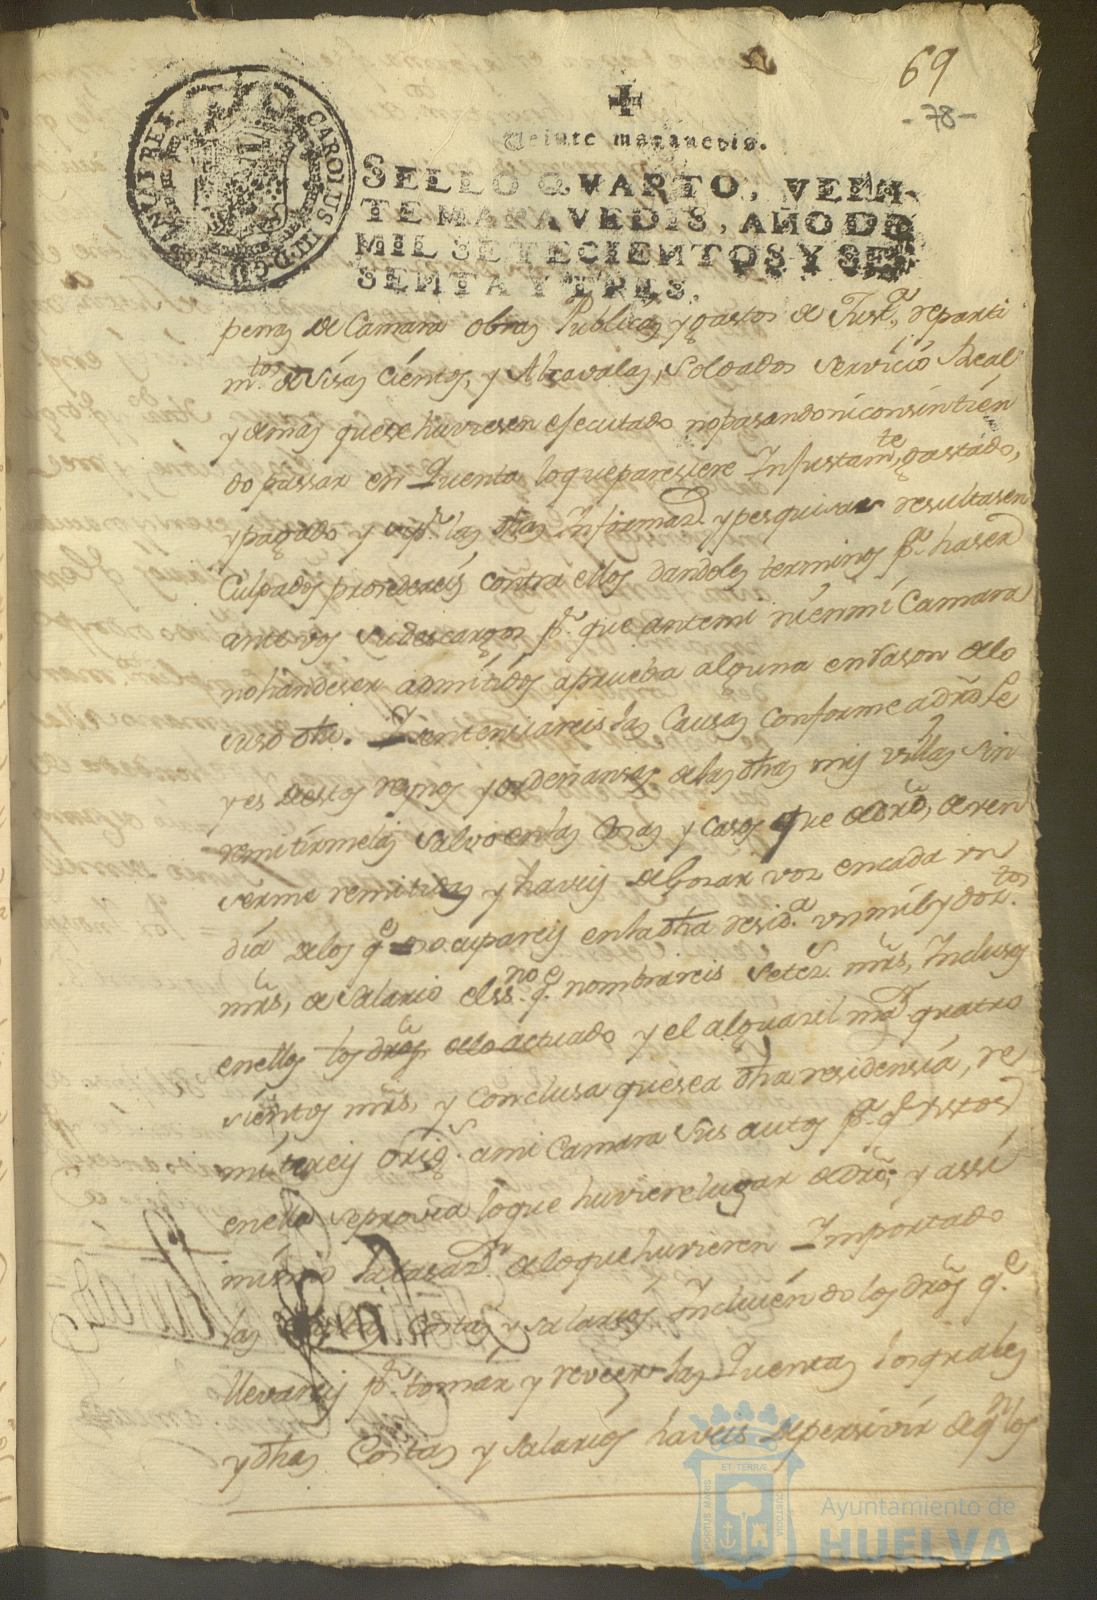 69
-78-
CAROLUS III D G
Veinte maravedis.
SELLO QVARTO, VEIN
TE MARAVEDIS, AÑO DE
MIL SETECIENTOS Y SE
SENTA Y TRES.
penas de Camara obras Publicas y gastos de Just.ª, reparti
m.tos de Sisas Cientos, y Alcavalas, Soldados Servicio Real
y demas que se huviesen efecutado no pasando ni consintien
do passar en Quenta lo que paresiere Injustam.te gastado,
y pagado y si p.r las dhas Informaz.s y pesquisas resultasen
Culpados prosedereis contra ellos dandoles terminos p.ª haser
ante vos sus descargos p.r que ante mi ni en mi Camara
no han de ser admitidos a prueba alguna en rason de lo
suso dho. Sentenciareis las Causas conforme a dro Le
yes destos reynos y ordenansas de las dhas mis villas sin
remitirmelas salvo en las Cosas y casos que de dro, deven
serme remitidas y haveis de Gosar vos en cada un
dia de los q.e os ocupareis en la dha resid.ª un mil y doz.tos
mrs, de salario el ss.no q.e nombrareis setez.s mrs, Inclusos
en ellos los dros de lo actuado y el alguazil ma.r quatro
sientos mrs, y Conclusa que sea dha residensia, re
mitireis orig.s a mi Camara sus autos p.ª q.e vistos
en ella se provea lo que huviere lugar de dro; y assi
mismo la tasaz.n de lo que huvieren Importado
las Costas y salarios Incluiendo los dros q.e
llevareis p.r tomar y reveer las Quentas
y dhas Costas y salarios haveis de persivir de q.n los
PORTUS MARIS ET TERRÆ CUSTODIA
Ayuntamiento de
HUELVA